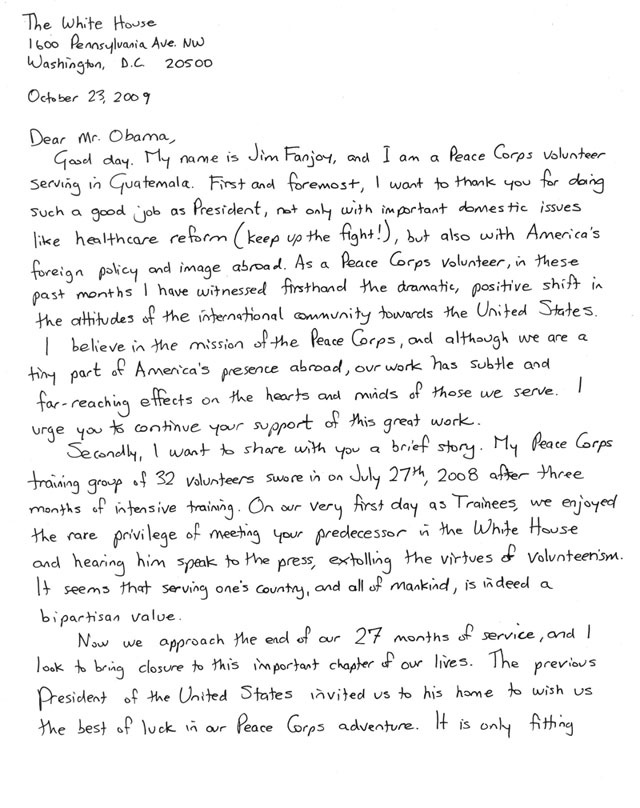 The White House
1600 Pennsylvania Ave. NW
Washington, D.C. 20500
October 23, 2009
Dear Mr. Obama,
Good day. My name is Jim Fanjoy, and I am a Peace Corps volunteer
serving in Guatemala. First and foremost, I want to thank you for doing
such a good job as President, not only with important domestic issues
like healthcare reform (keep up the fight!), but also with America's
foreign policy and image abroad. As a Peace Corps volunteer, in these
past months I have witnessed firsthand the dramatic, positive shift in
the attitudes of the international community towards the United States.
I believe in the mission of the Peace Corps, and although we are a
tiny part of America's presence abroad, our work has subtle and
far-reaching effects on the hearts and minds of those we serve. I
urge you to continue your support of this great work.
Secondly, I want to share with you a brief story. My Peace Corps
training group of 32 volunteers swore in on July 27th, 2008 after three
months of intensive training. On our very first day as Trainees, we enjoyed
the rare privilege of meeting your predecessor in the White House
and hearing him speak to the press, extolling the virtues of volunteerism.
It seems that serving one's country, and all of mankind, is indeed a
bipartisan value.
Now we approach the end of our 27 months of service, and I
look to bring closure to this important chapter of our lives. The previous
President of the United States invited us to his home to wish us
the best of luck in our Peace Corps adventure. It is only fitting